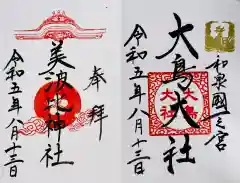 奉拝
美波比神社
令和五年八月十三日
和泉國一之宮
大鳥大社
大鳥大社
令和五年八月十三日